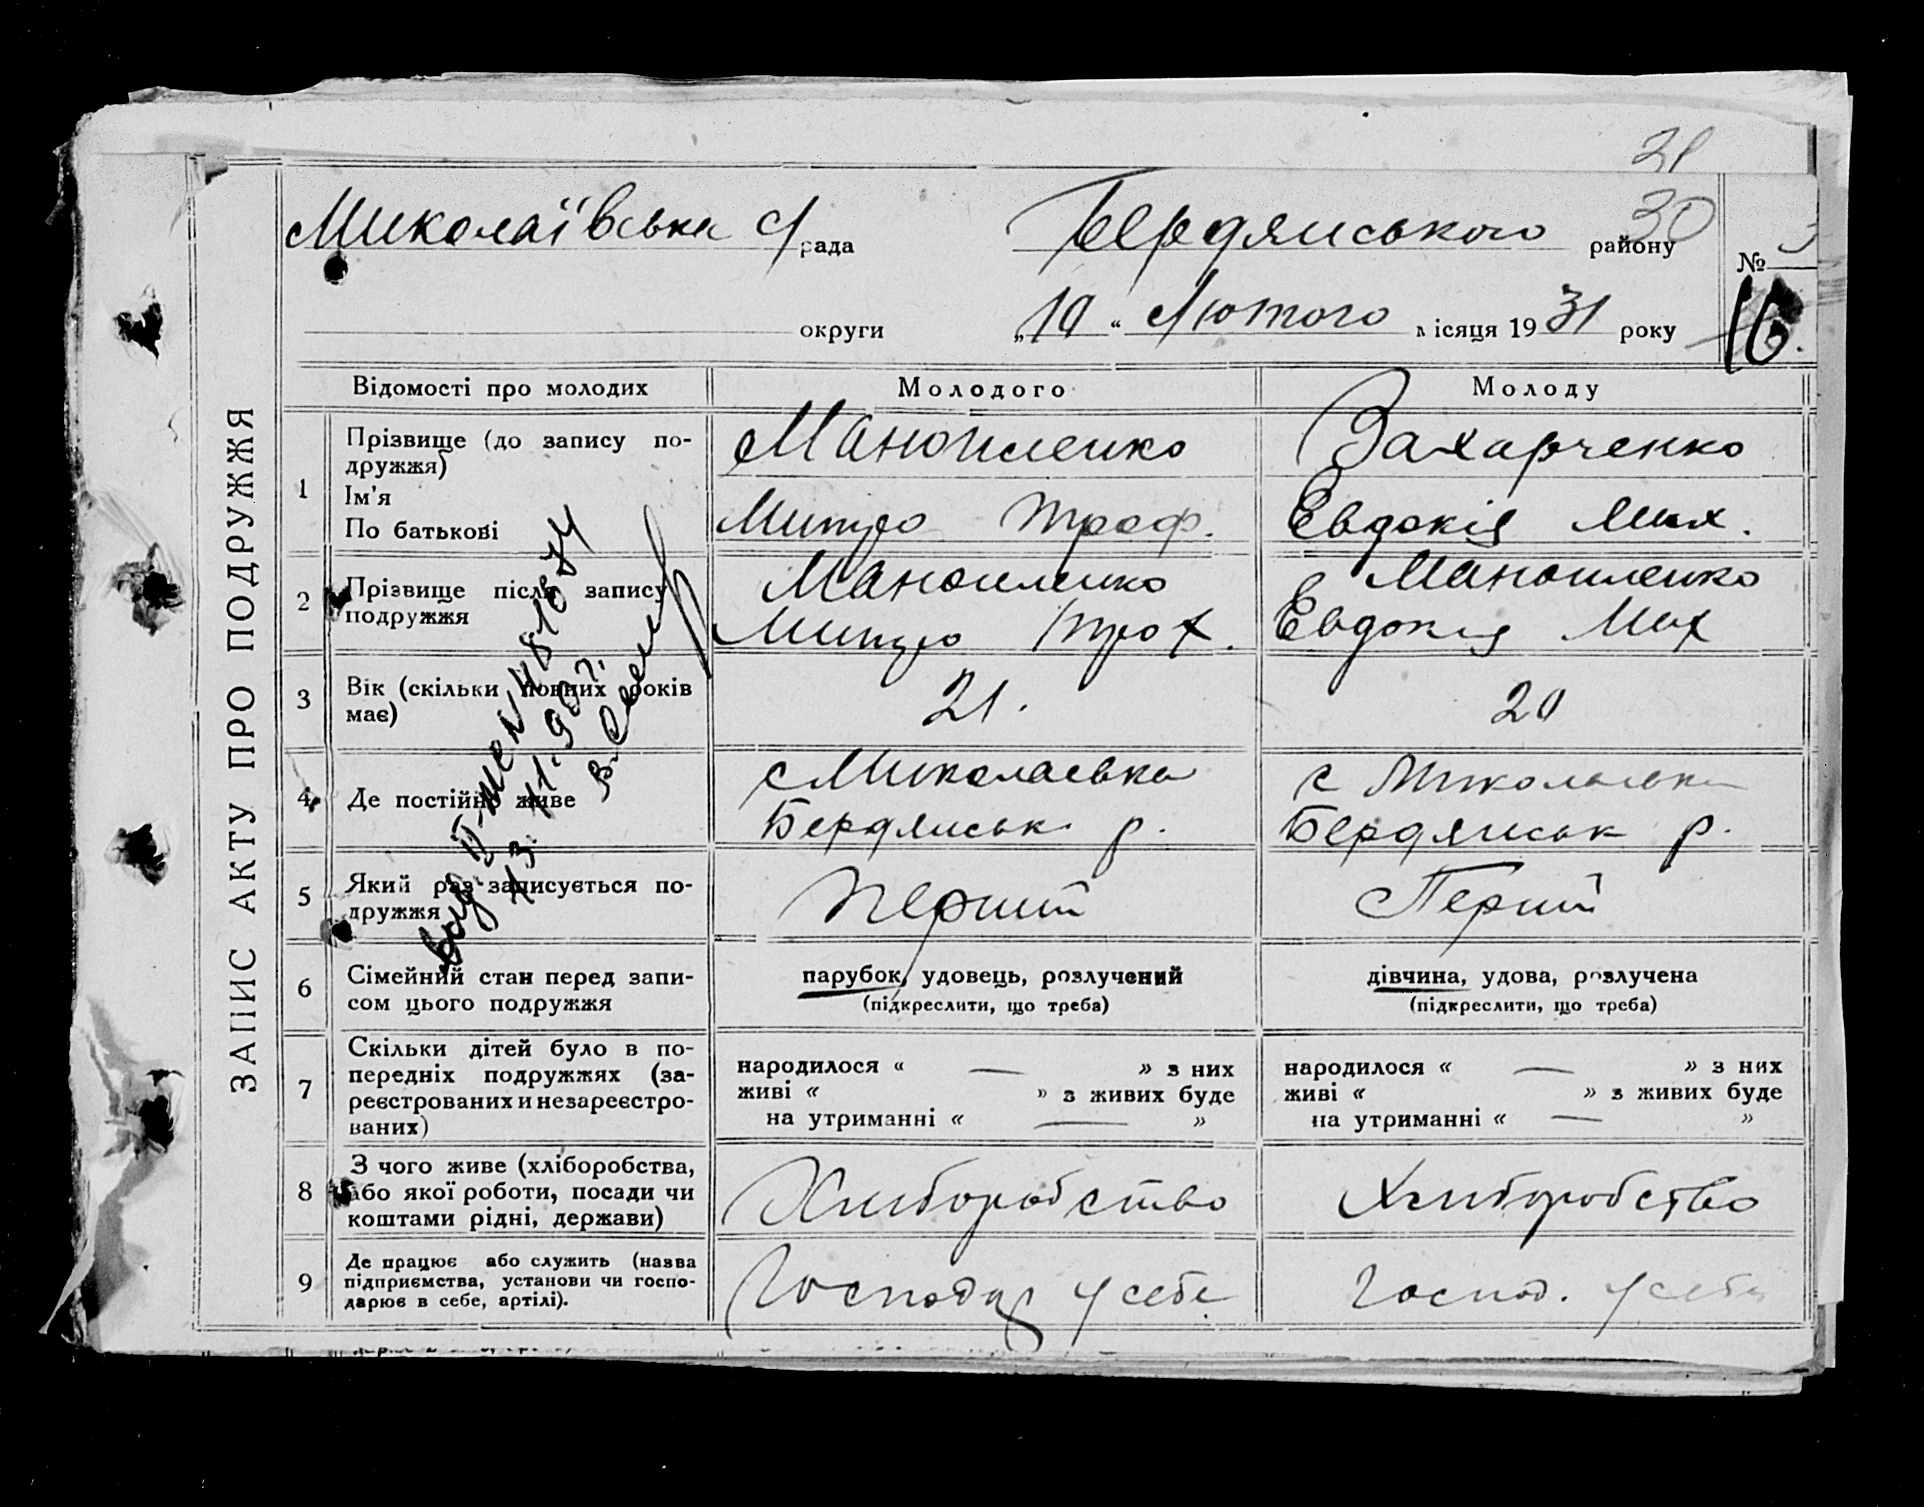 31
Миколаївська с/рада Бердянського району 30
№ 3
округи „10“ Лютого місяця 1931 року
16.
ЗАПИС АКТУ ПРО ПОДРУЖЖЯ
Відомості про молодих Молодого Молоду
1 Прізвище (до запису по-
дружжя)
Ім'я
По батькові
Манойленко
Митро Троф.
Захарченко
Евдокія Мих.
2 Прізвище після запису
подружжя
Манойленко
Митро Трох.
Манойленко
Евдокія Мих
3 Вік (скільки повних років
має)
21.
20
4 Де постійно живе
с Миколаевка
Бердянськ р.
с Миколаевка
Бердянськ р.
5 Який раз записується по-
дружжя
Перший
Перший
6 Сімейний стан перед запи-
сом цього подружжя
парубок, удовець, розлучений
(підкреслити, що треба)
дівчина, удова, розлучена
(підкреслити, що треба)
7 Скільки дітей було в по-
передніх подружжях (за-
реєстрованих и незареєстро-
ваних)
народилося « — » з них
живі « » з живих буде
на утриманні « — »
народилося « — » з них
живі « » з живих буде
на утриманні « — »
8 З чого живе (хліборобства,
або якої роботи, посади чи
коштами рідні, держави)
Хліборобство
Хліборобство
9 Де працює або служить (назва
підприємства, установи чи госпо-
дарює в себе, артілі).
Господар у себе
Господ. у себе